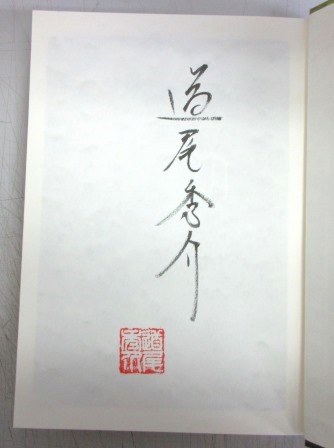 道尾秀介
道尾秀介